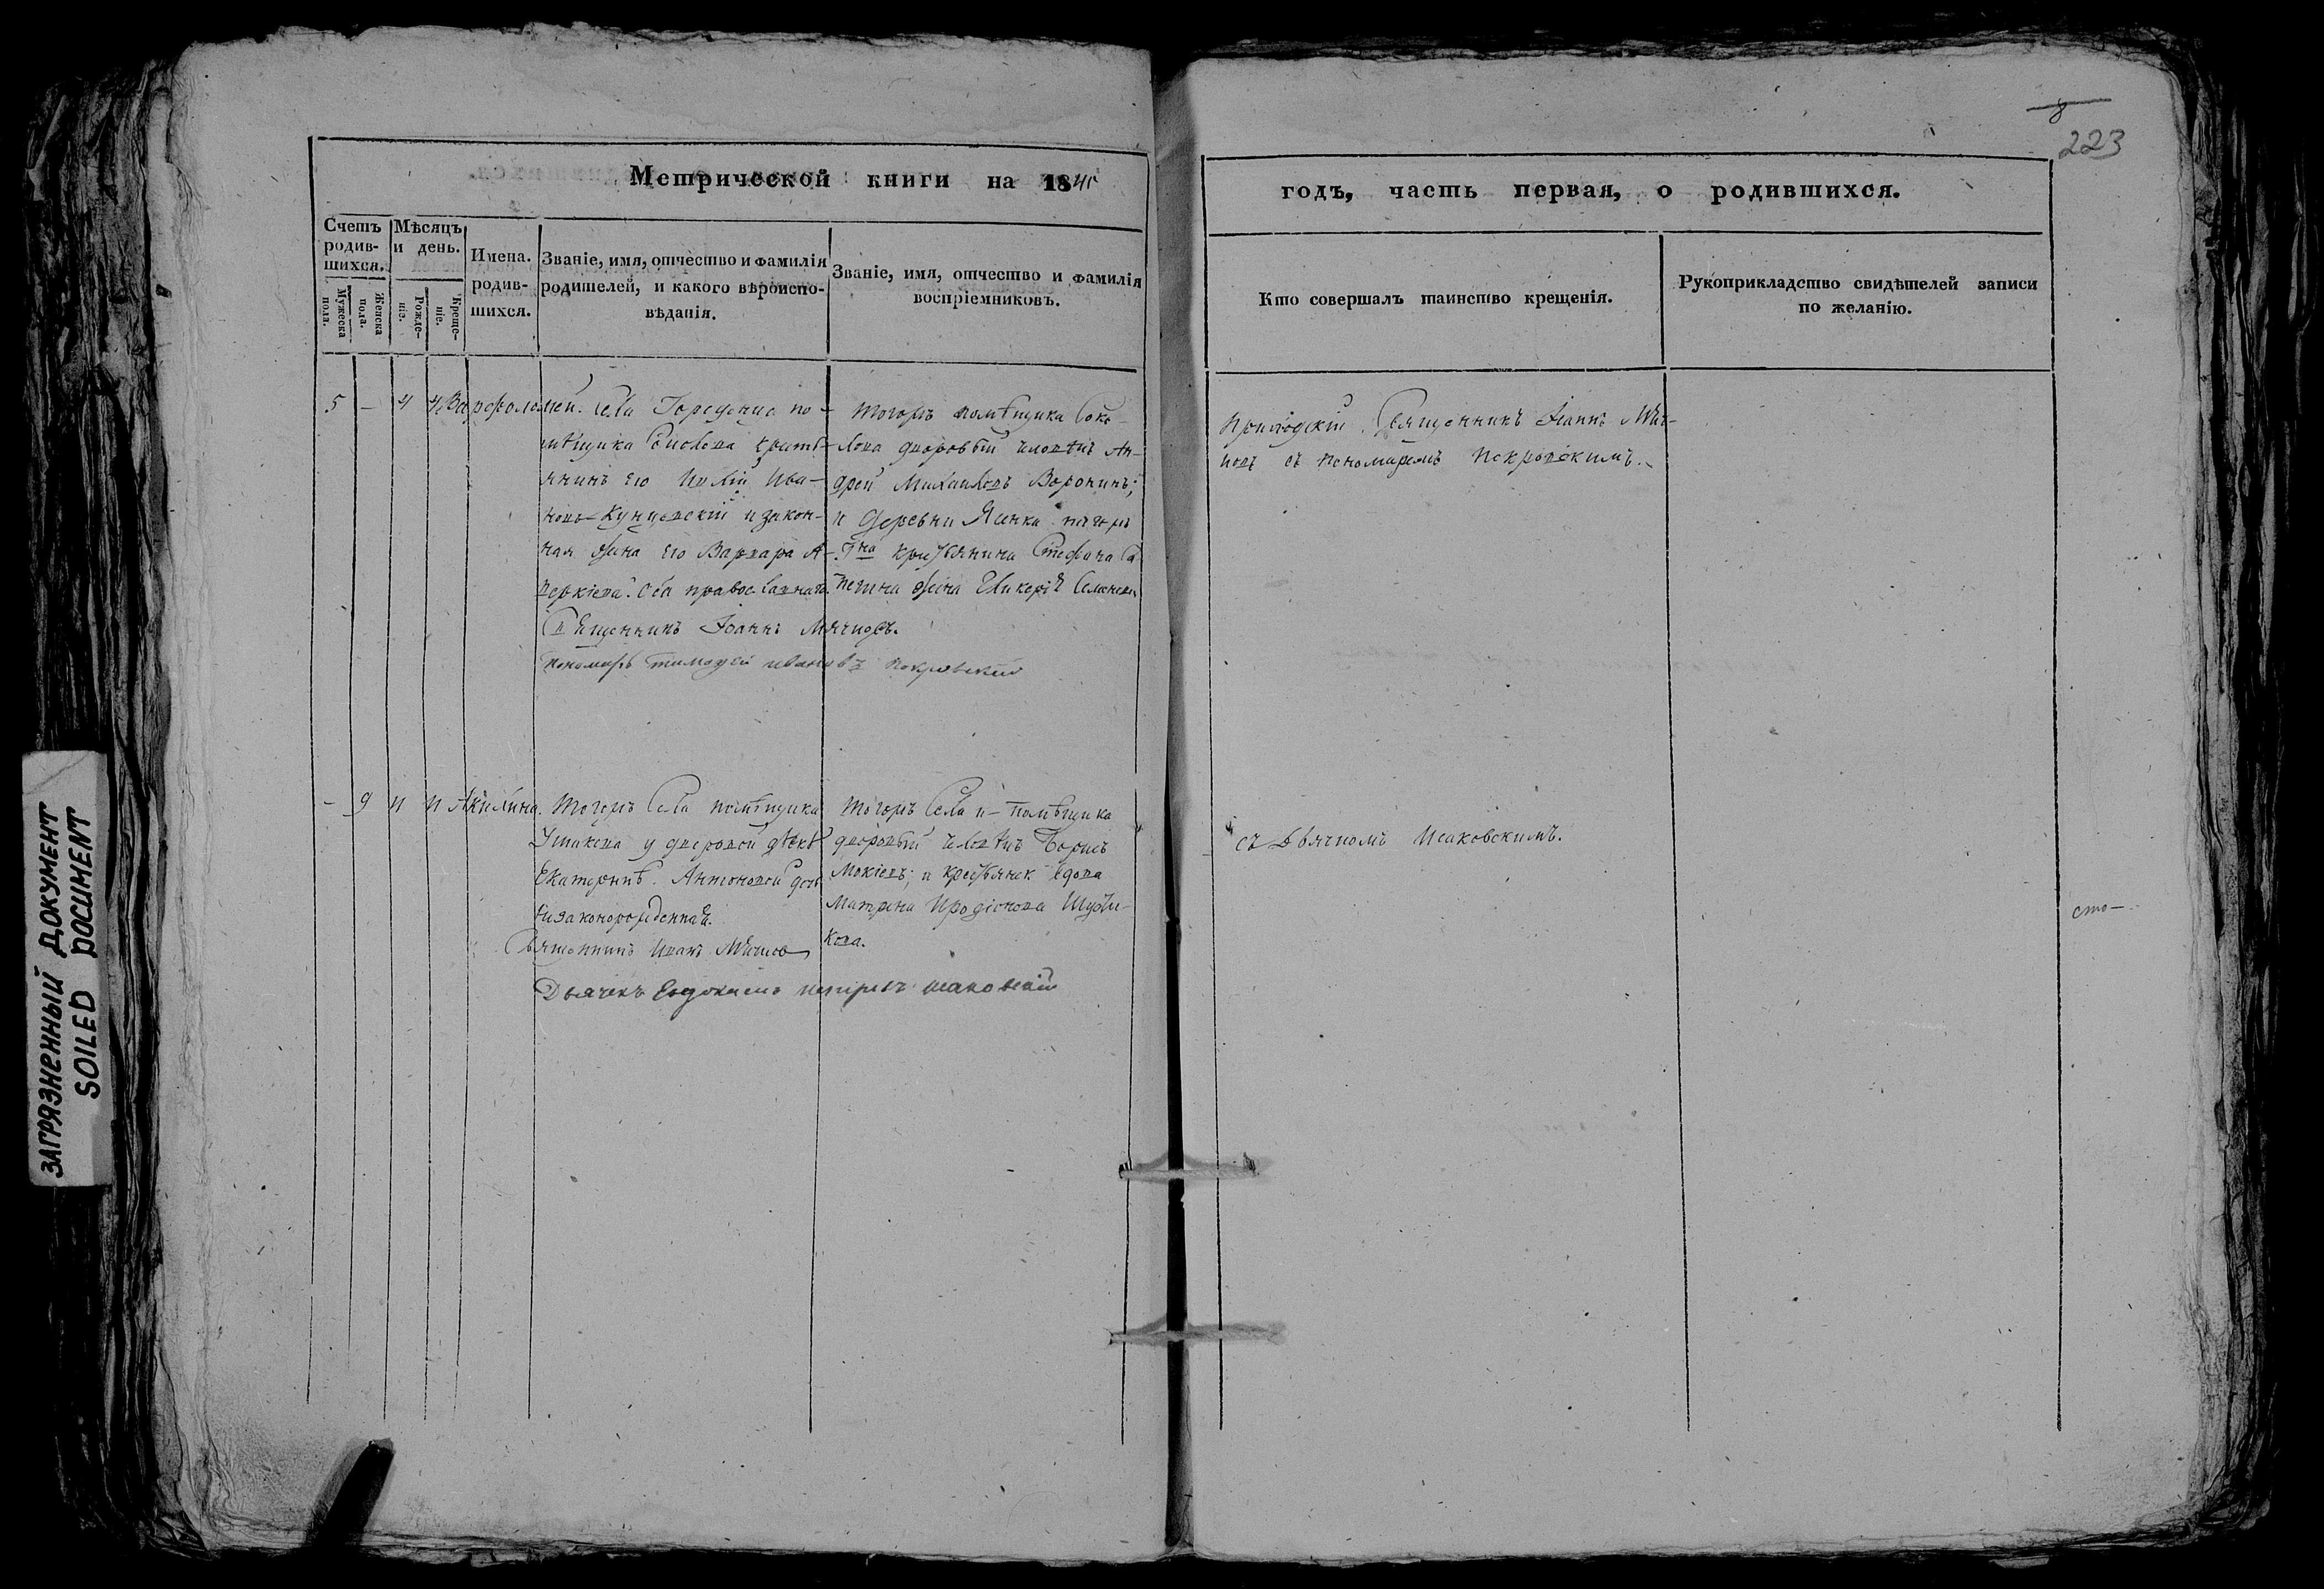 223
Метрической книги на 1841
годъ, часть первая, о родившихся.
Счетъ родив-шихся.
Мужеска пола.
Женска пола.
Мѣсяцъ и день.
Рожде-ніе.
Креще-ніе.
Имена. родив-шихся.
Званіе, имя, отчество и фамилія
родителей, и какого вѣроиспо-
вѣданія.
Званіе, имя, отчество и фамилія
воспріемниковъ.
Кто совершалъ таинство крещенія.
Рукоприкладство свидѣтелей записи
по желанію.
5 - 4 Варфоломей.
Села по-
мѣщика кресть-
янинъ его Ива-
новъ и закон-
ная жена его Варвара А-
веркіева. оба православнаго.
Священникъ Іоаннъ Мячиовъ.
Пономарь Тимофей Ивановъ Покровскій
Тогожъ помѣщика Соко-
лова дворовый человѣкъ Ан-
дрей Михаиловъ Воронинъ;
и деревни Ясенка
крестьянина Стефана
жена
Приходскій Священникъ Іоаннъ
съ пономаремъ Покровскимъ.
- 9 11 11 Акилина.
Тогожъ Села помѣщика
Ушакова у дворовой дѣвки
Екатерины Антоновой дочь
незаконорожденная.
Священникъ Иванъ
Дьячекъ Евдокимъ Исаковскій
Тогожъ Села и помѣщика
дворовый человѣкъ Борисъ
Мокіевъ; и крестьянск вдова
Матрена Иродіонова
кова.
съ Дьячкомъ Исаковскимъ.
сто-
ЗАГРЯЗНЕННЫЙ ДОКУМЕНТ
SOILED DOCUMENT